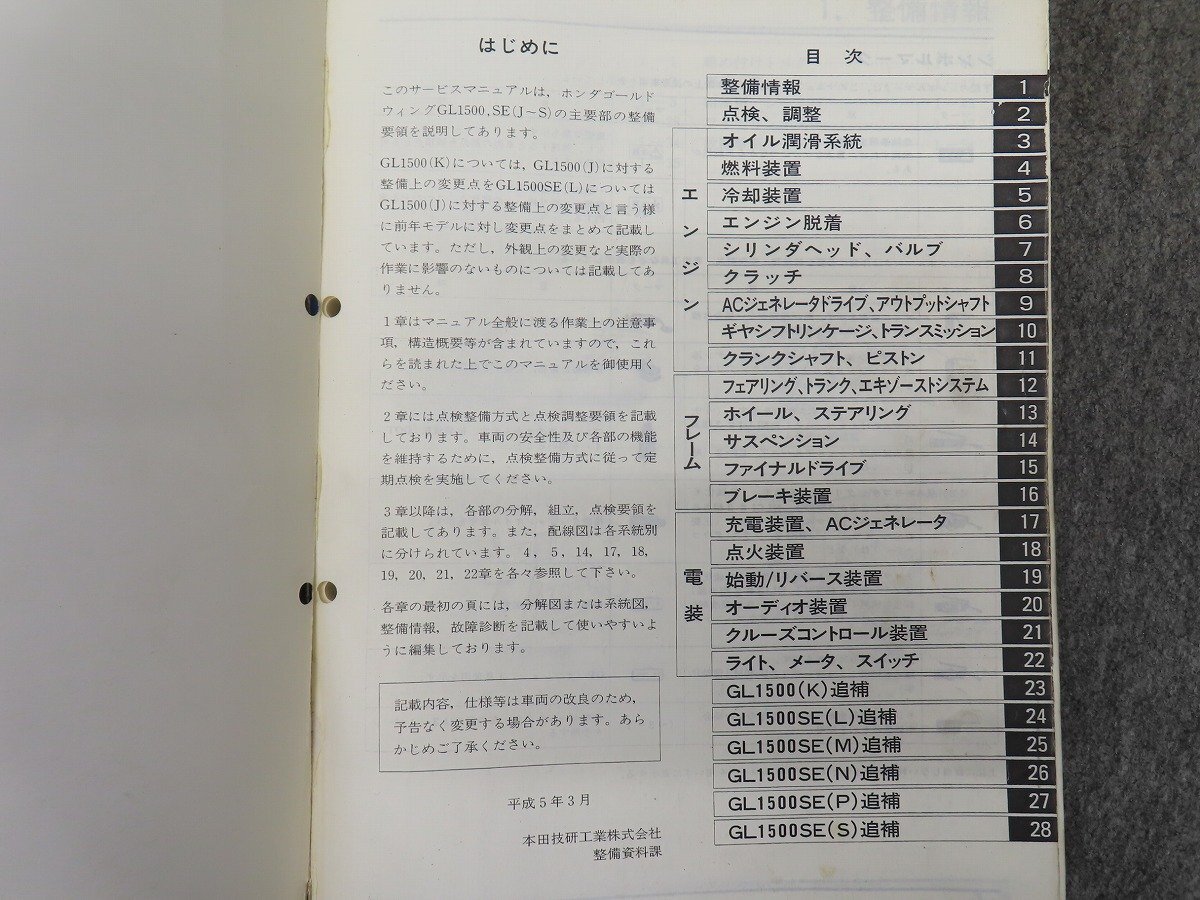 はじめに
このサービスマニュアルは，ホンダゴールド
ウィングGL1500,SE(J～S)の主要部の整備
要領を説明してあります。
GL1500(K)については，GL1500(J)に対する
整備上の変更点をGL1500SE(L)については
GL1500(J)に対する整備上の変更点と言う様
に前年モデルに対し変更点をまとめて記載し
ています。ただし，外観上の変更など実際の
作業に影響のないものについては記載してあ
りません。
1章はマニュアル全般に渡る作業上の注意事
項，構造概要等が含まれていますので，これ
らを読まれた上でこのマニュアルを御使用く
ださい。
2章には点検整備方式と点検調整要領を記載
しております。車両の安全性及び各部の機能
を維持するために，点検整備方式に従って定
期点検を実施してください。
3章以降は，各部の分解，組立，点検要領を
記載してあります。また，配線図は各系統別
に分けられています。4，5，14，17，18，
19，20，21，22章を各々参照して下さい。
各章の最初の頁には，分解図または系統図，
整備情報，故障診断を記載して使いやすいよ
うに編集しております。
記載内容，仕様等は車両の改良のため，
予告なく変更する場合があります。あら
かじめご了承ください。
平成5年3月
本田技研工業株式会社
整備資料課
目次
整備情報 1
点検、調整 2
エンジン
オイル潤滑系統 3
燃料装置 4
冷却装置 5
エンジン脱着 6
シリンダヘッド、バルブ 7
クラッチ 8
ACジェネレータドライブ、アウトプットシャフト 9
ギヤシフトリンケージ、トランスミッション 10
クランクシャフト、ピストン 11
フレーム
フェアリング、トランク、エキゾーストシステム 12
ホイール、ステアリング 13
サスペンション 14
ファイナルドライブ 15
ブレーキ装置 16
電装
充電装置、ACジェネレータ 17
点火装置 18
始動/リバース装置 19
オーディオ装置 20
クルーズコントロール装置 21
ライト、メータ、スイッチ 22
GL1500(K)追補 23
GL1500SE(L)追補 24
GL1500SE(M)追補 25
GL1500SE(N)追補 26
GL1500SE(P)追補 27
GL1500SE(S)追補 28